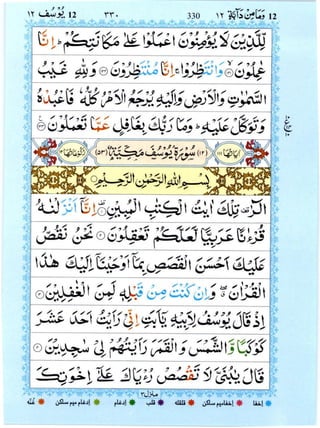 ١٢ يُوْسُف 12
٣٣٠
330
وَمَا مِنْ دَآبَّةٍ ١٢ 12
لِّلَّذِيْنَ لَا يُؤْمِنُوْنَ اعْمَلُوْا عَلٰى مَكَانَتِكُمْ ؕ اِنَّا
عٰمِلُوْنَ ۙ وَانْتَظِرُوْا ۚ اِنَّا مُنْتَظِرُوْنَ ۞ وَلِلّٰهِ غَيْبُ
السَّمٰوٰتِ وَالْاَرْضِ وَاِلَيْهِ يُرْجَعُ الْاَمْرُ كُلُّهٗ فَاعْبُدْهُ
وَتَوَكَّلْ عَلَيْهِ ؕ وَمَا رَبُّكَ بِغَافِلٍ عَمَّا تَعْمَلُوْنَ ۞
(١٢) سُوْرَةُ يُوْسُفَ مَكِّيَّةٌ (٥٣)
بِسْمِ اللّٰهِ الرَّحْمٰنِ الرَّحِيْمِ
الٓرٰ ۚ تِلْكَ اٰيٰتُ الْكِتٰبِ الْمُبِيْنِ ۞ اِنَّاۤ اَنْزَلْنٰهُ
قُرْءٰنًا عَرَبِيًّا لَّعَلَّكُمْ تَعْقِلُوْنَ ۞ نَحْنُ نَقُصُّ
عَلَيْكَ اَحْسَنَ الْقَصَصِ بِمَاۤ اَوْحَيْنَاۤ اِلَيْكَ هٰذَا
الْقُرْاٰنَ ۖ وَاِنْ كُنْتَ مِنْ قَبْلِهٖ لَمِنَ الْغٰفِلِيْنَ ۞
اِذْ قَالَ يُوْسُفُ لِاَبِيْهِ يٰۤاَبَتِ اِنِّيْ رَاَيْتُ اَحَدَ عَشَرَ
كَوْكَبًا وَّالشَّمْسَ وَالْقَمَرَ رَاَيْتُهُمْ لِيْ سٰجِدِيْنَ ۞
قَالَ يٰبُنَيَّ لَا تَقْصُصْ رُءْيَاكَ عَلٰۤى اِخْوَتِكَ
منزل ٣
اخفا
اخفا میم ساکن
قلقلہ
قلب
ادغام
ادغام میم ساکن
غنہ